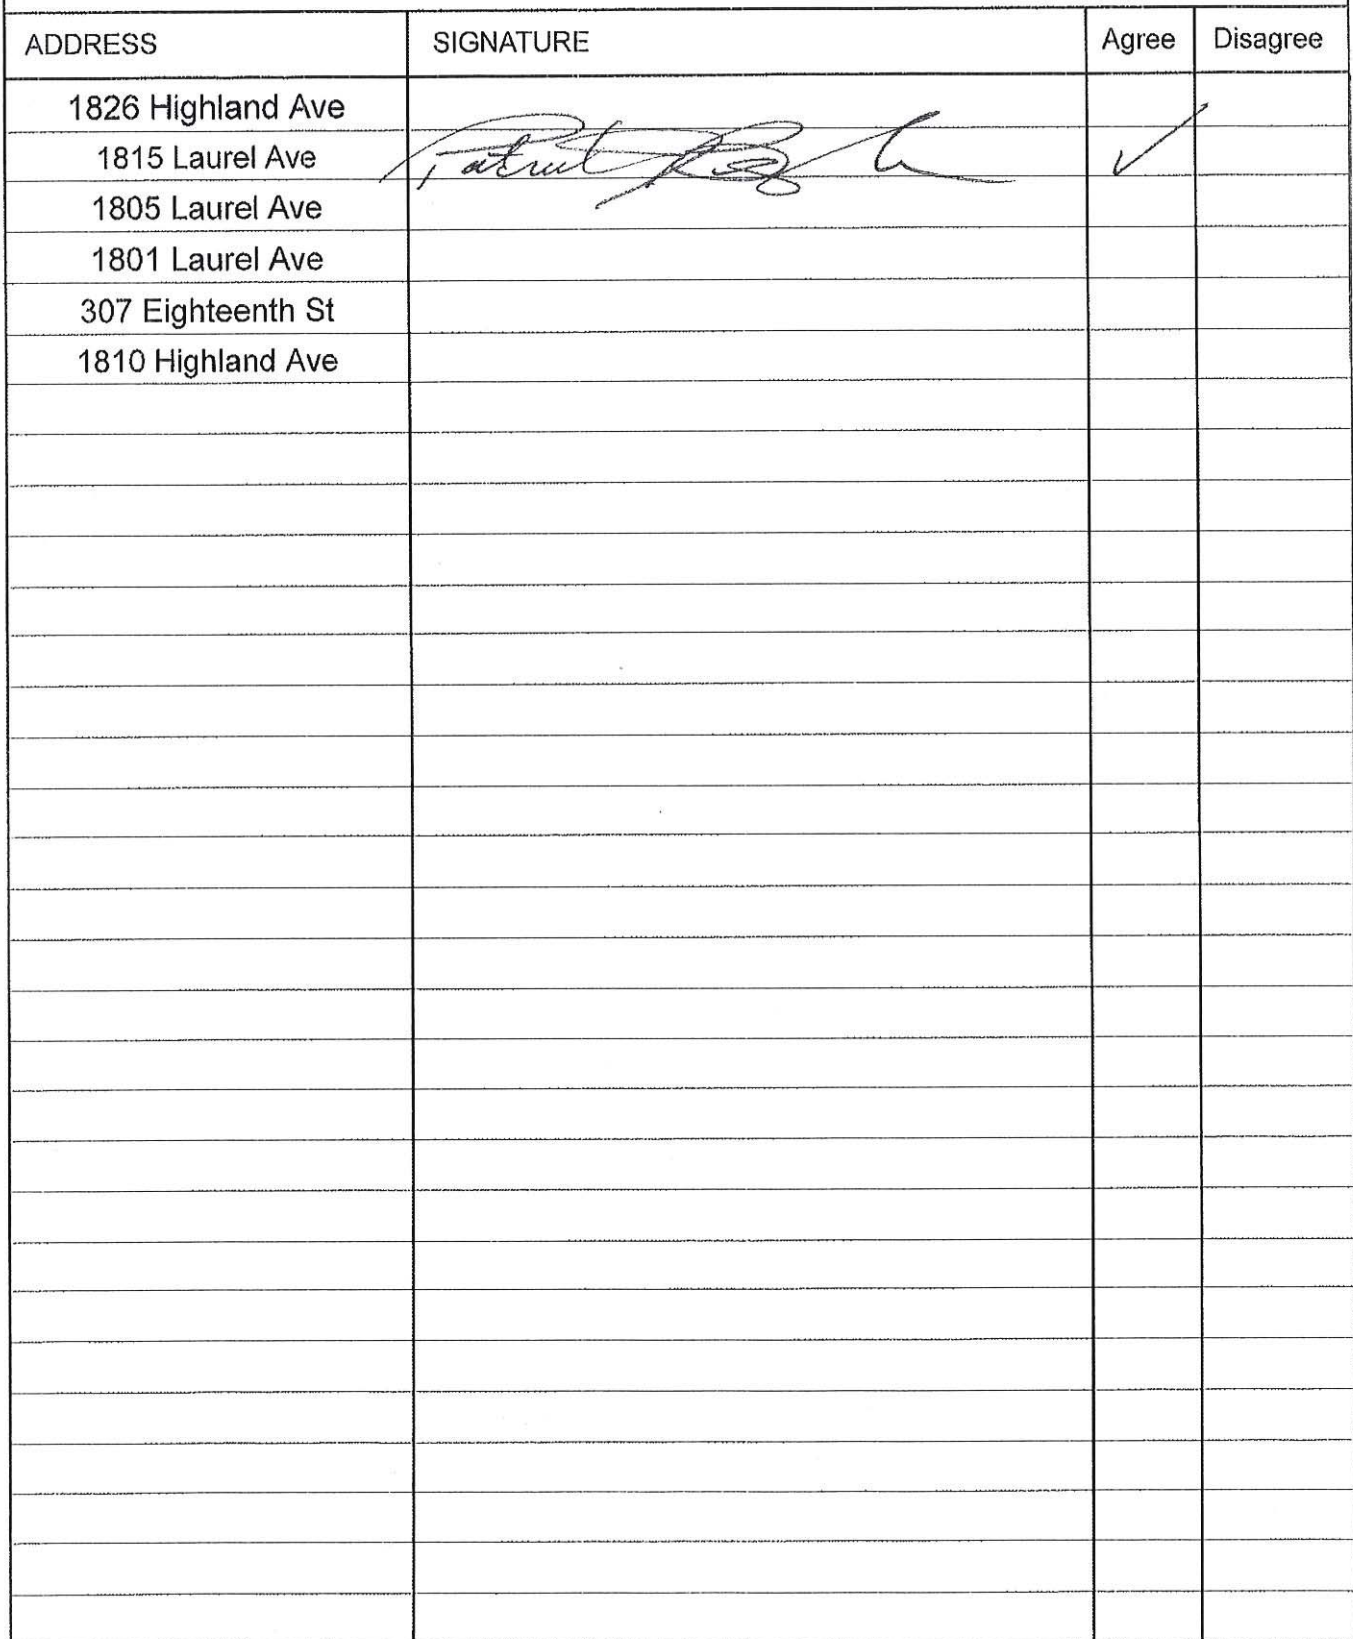 ADDRESS SIGNATURE Agree Disagree
1826 Highland Ave
1815 Laurel Ave ✓
1805 Laurel Ave
1801 Laurel Ave
307 Eighteenth St
1810 Highland Ave